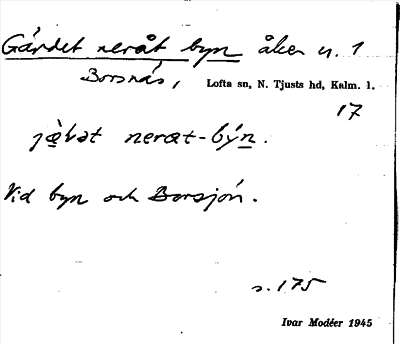 Gärdet neråt byn åker n. 1
Borsnäs, Lofta sn, N. Tjusts hd, Kalm. l.
17
neræt-by̌n.
Vid byn och Borsjön.
s. 175
Ivar Modéer 1945